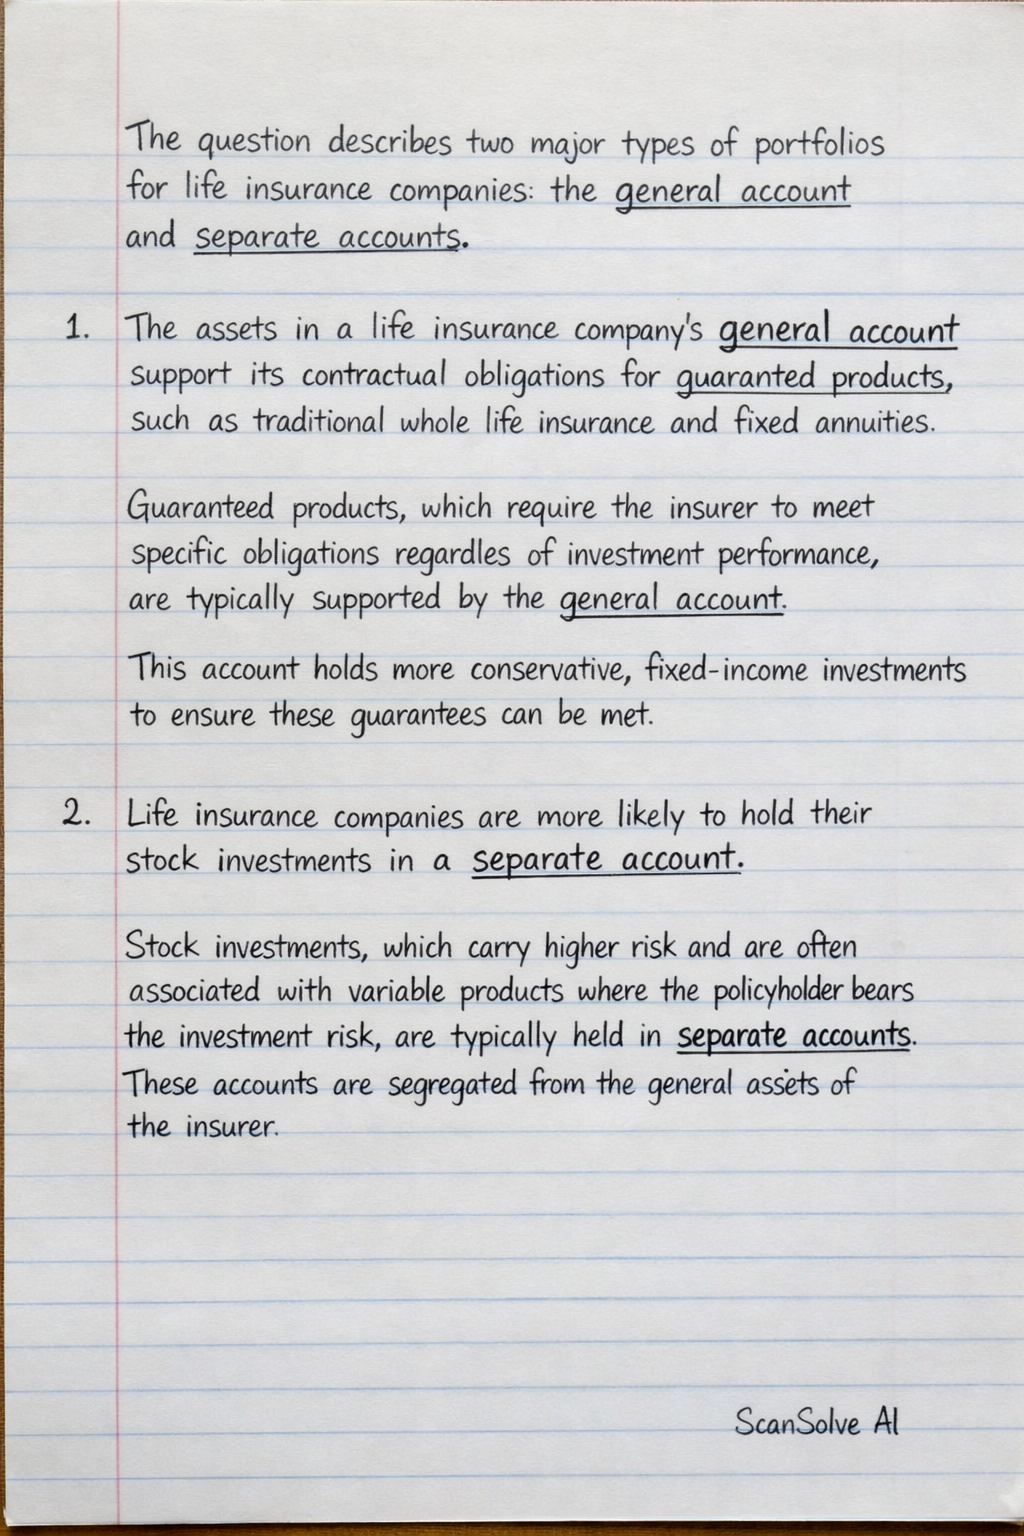 The question describes two major types of portfolios
for life insurance companies: the general account
and separate accounts.
1. The assets in a life insurance company's general account
support its contractual obligations for guaranted products,
such as traditional whole life insurance and fixed annuities.
Guaranteed products, which require the insurer to meet
specific obligations regardles of investment performance,
are typically supported by the general account.
This account holds more conservative, fixed-income investments
to ensure these guarantees can be met.
2. Life insurance companies are more likely to hold their
stock investments in a separate account.
Stock investments, which carry higher risk and are often
associated with variable products where the policyholder bears
the investment risk, are typically held in separate accounts.
These accounts are segregated from the general assets of
the insurer.
ScanSolve AI